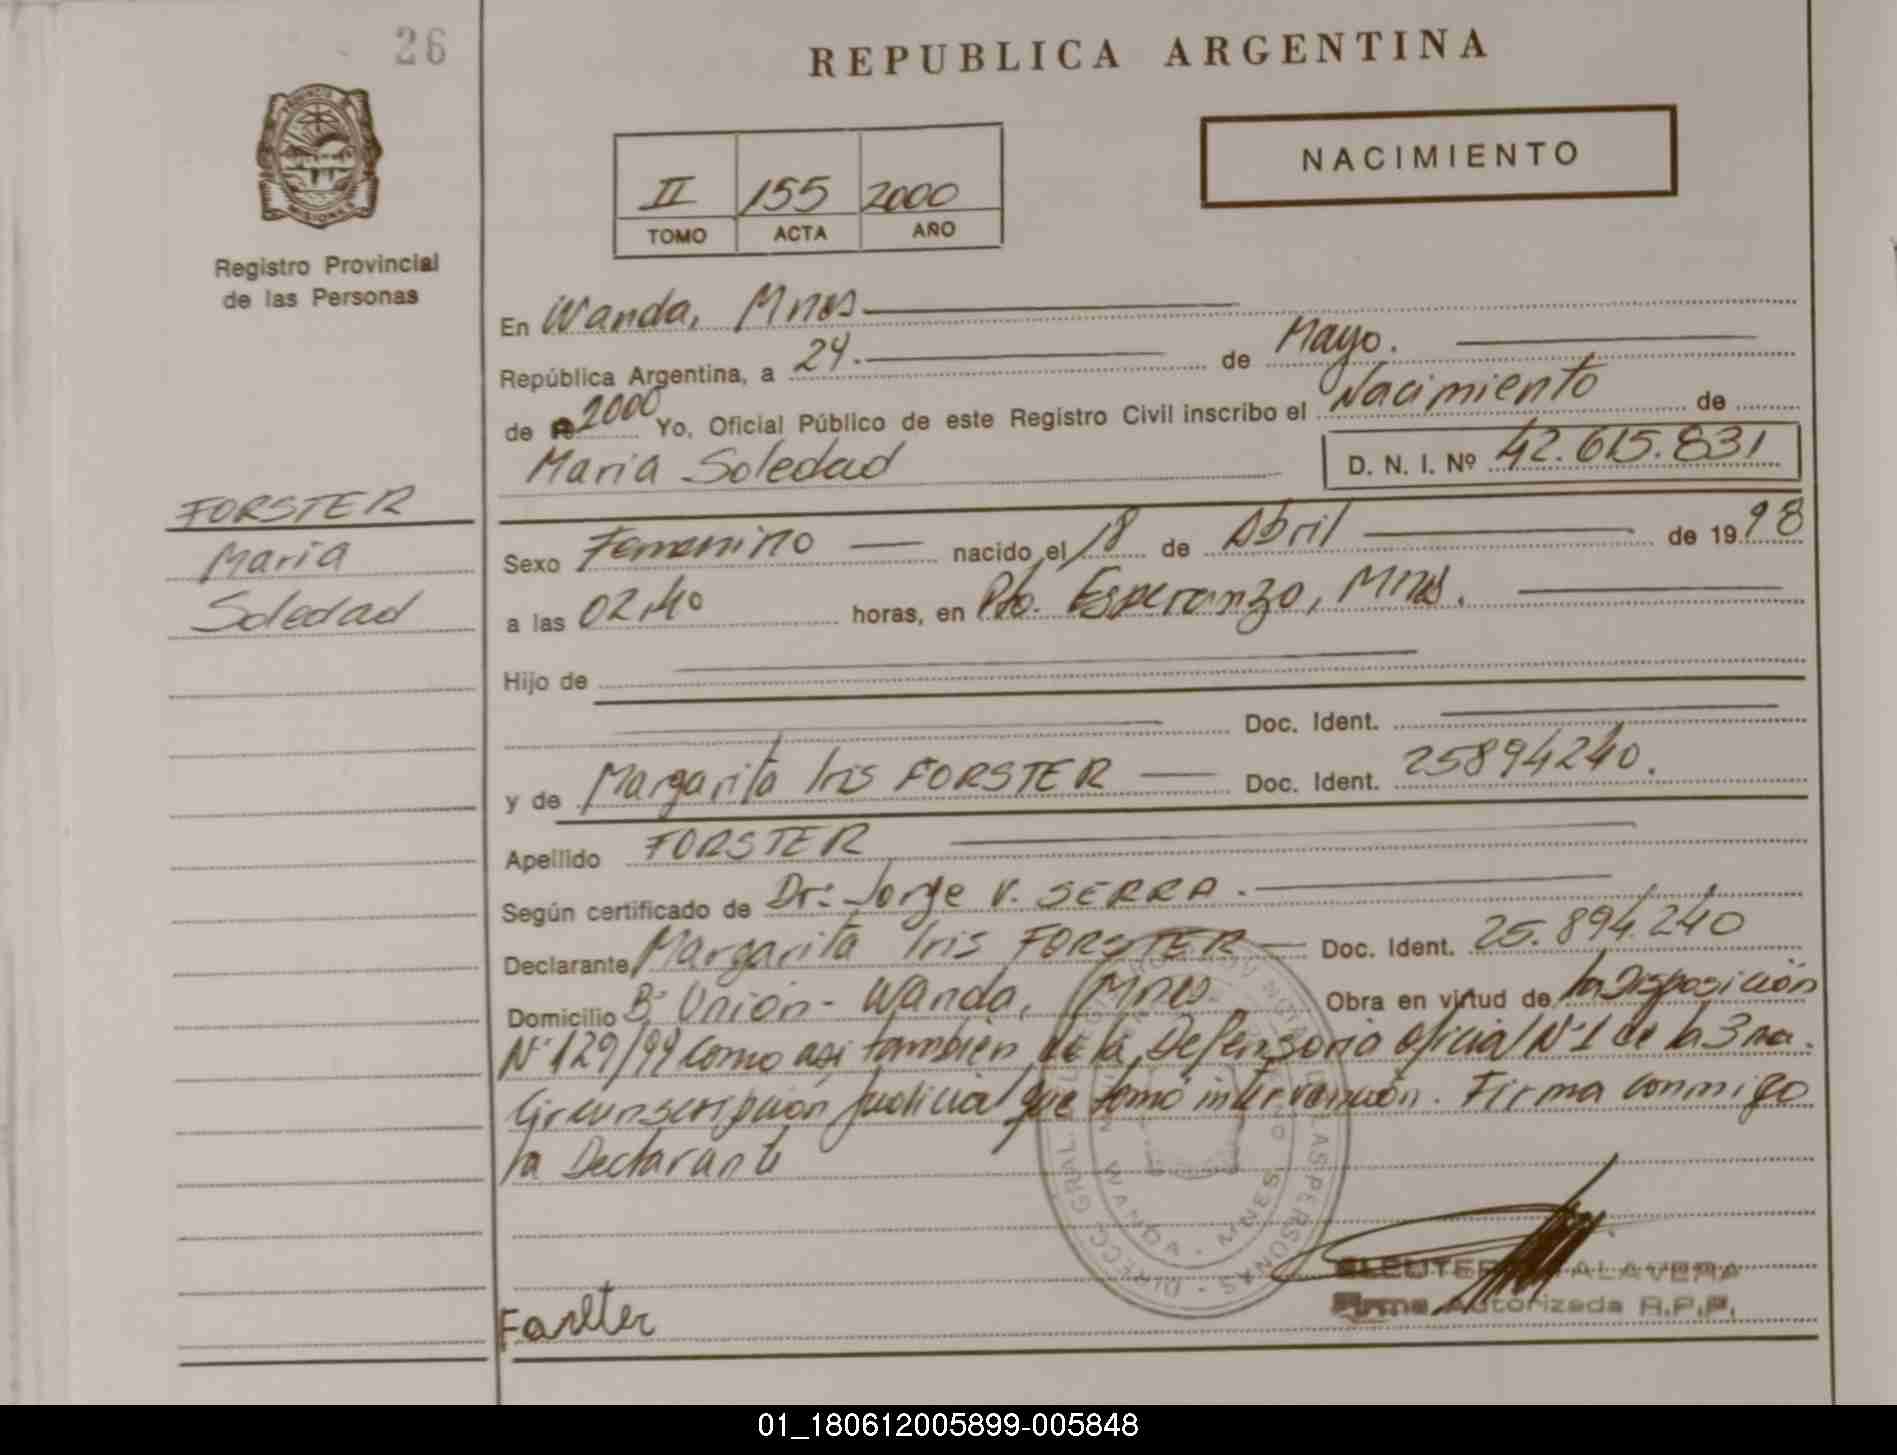 26
REPUBLICA ARGENTINA
NACIMIENTO
II 155 2000
TOMO ACTA AÑO
Registro Provincial
de las Personas
En Wanda, Mnes
República Argentina, a 24. de Mayo.
de 2000 Yo, Oficial Público de este Registro Civil inscribo el Nacimiento de
Maria Soledad D. N. I. Nº 42.615.831
FORSTER
Maria
Soledad
Sexo Femenino nacido el 18 de Abril de 1998
a las 02,40 horas, en Pto. Esperanza, Mnes.
Hijo de
Doc. Ident.
y de Margarita Iris FORSTER Doc. Ident. 25894240.
Apellido FORSTER
Según certificado de Dr: Jorge V. SERRA.
Declarante Margarita Iris FORSTER Doc. Ident. 25.894.240
Domicilio Bº Unión - Wanda, Mnes Obra en virtud de la Disposición
Nº 129/99 como asi también de la Defensoria oficial Nº 1 de la 3ra.
Circunscripción Judicial que tomó intervención. Firma conmigo
la Declarante
WANDA - MNES
ELEUTERIO TALAVERA
Firma Autorizada R.P.P.
01_180612005899-005848